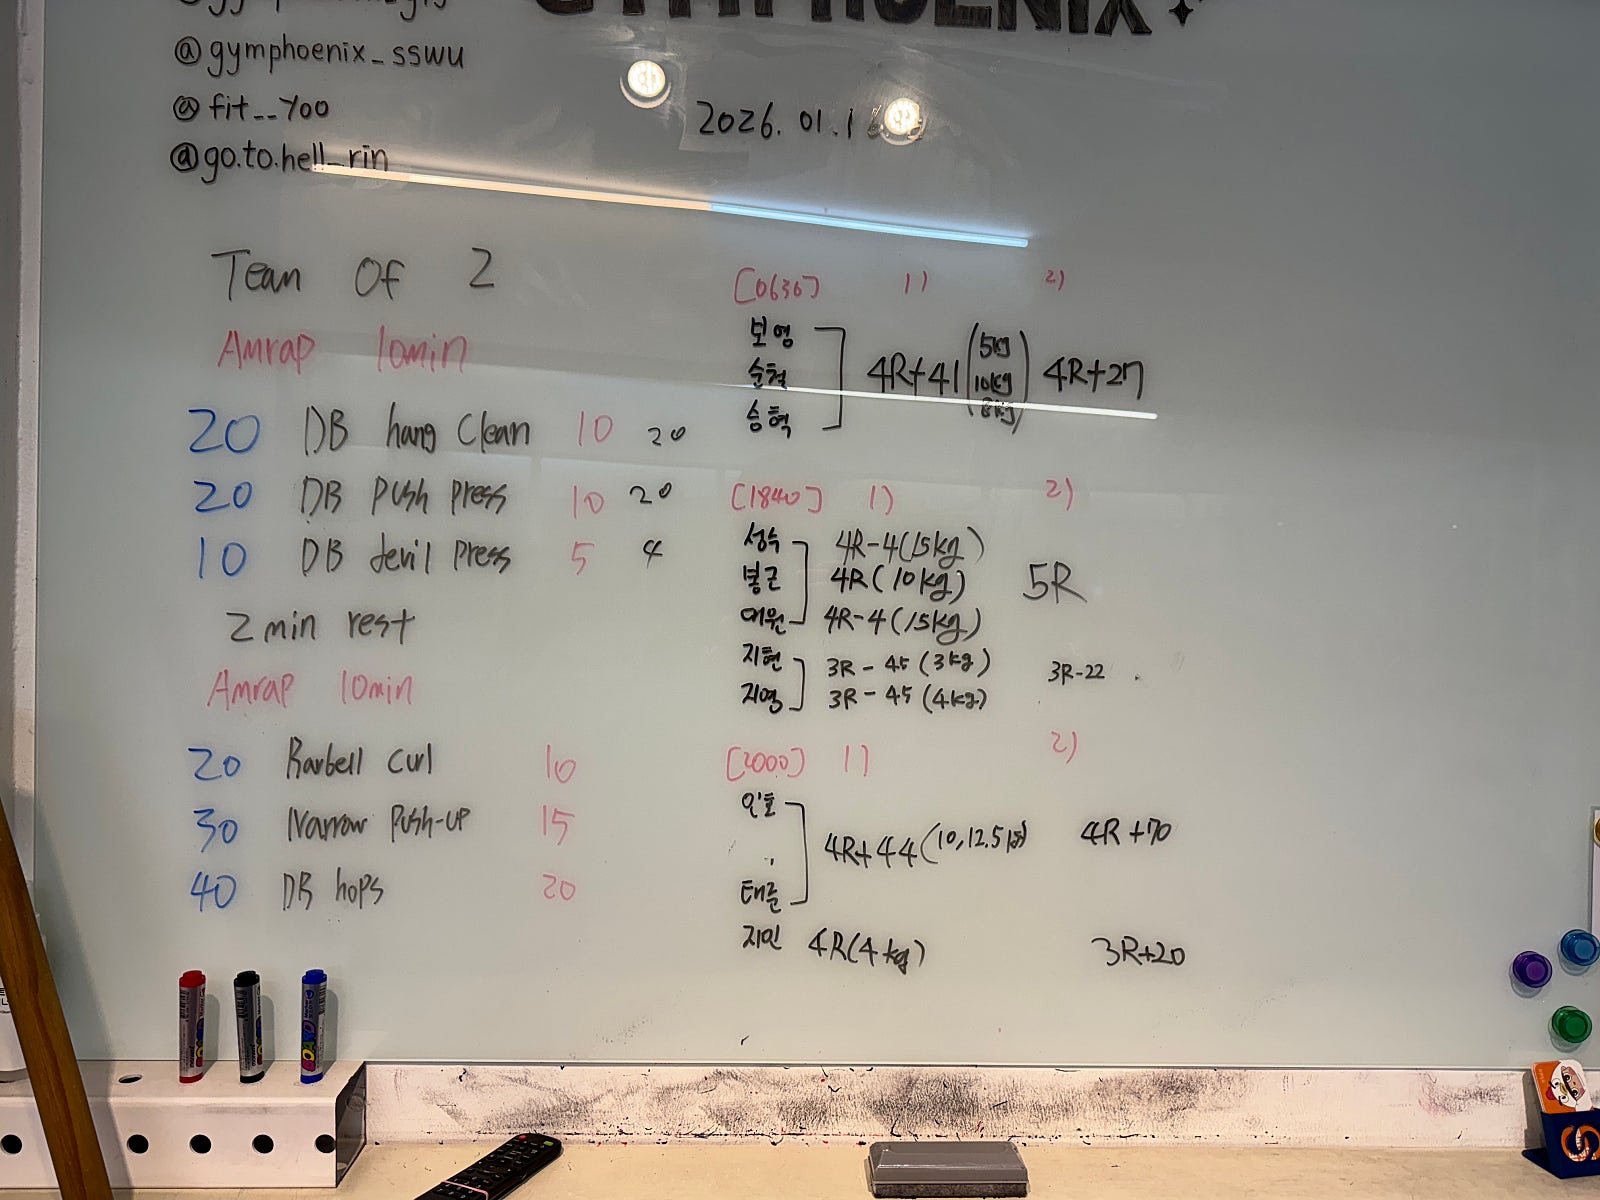 @gymphoenix_sswu
@fit__yoo
@go.to.hell_rin
GYMPHOENIX
2026. 01. 16
Team Of 2
Amrap 10min
20 DB hang Clean 10 20
20 DB Push Press 10 20
10 DB devil Press 5 4
2min rest
Amrap 10min
20 Barbell Curl 10
30 Narrow Push-up 15
40 DB hops 20
[0630] 1) 2)
보영
순철 4R+41 (5kg 10kg 8kg) 4R+27
승혁
[1840] 1) 2)
성수 4R-4(15kg)
봉근 4R(10kg) 5R
대원 4R-4(15kg)
지현 3R-45(3kg) 3R-22
지영 3R-45(4kg)
[2000] 1) 2)
인호
4R+44(10,12.5kg) 4R+70
태준
지인 4R(4kg) 3R+20